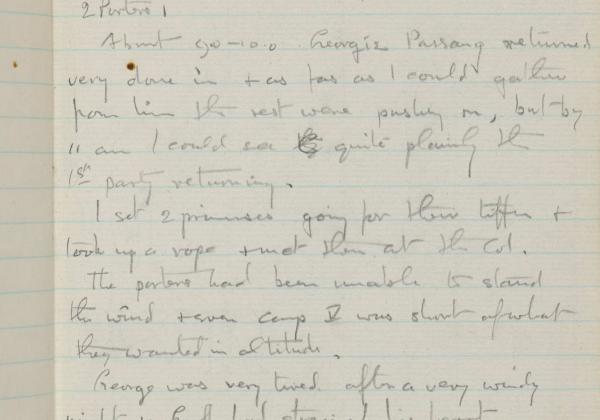 2 Porters 1
About 9.0 - 10.0 George's Passang returned
very done in + as far as I could gather
from him the rest were pushing on, but by
11 am I could see quite plainly the
1st party returning.
I set 2 primuses going for their tiffin +
took up a rope + met them at the Col.
The porters had been unable to stand
the wind + even camp V was short of what
they wanted in altitude.
George was very tired after a very windy
night